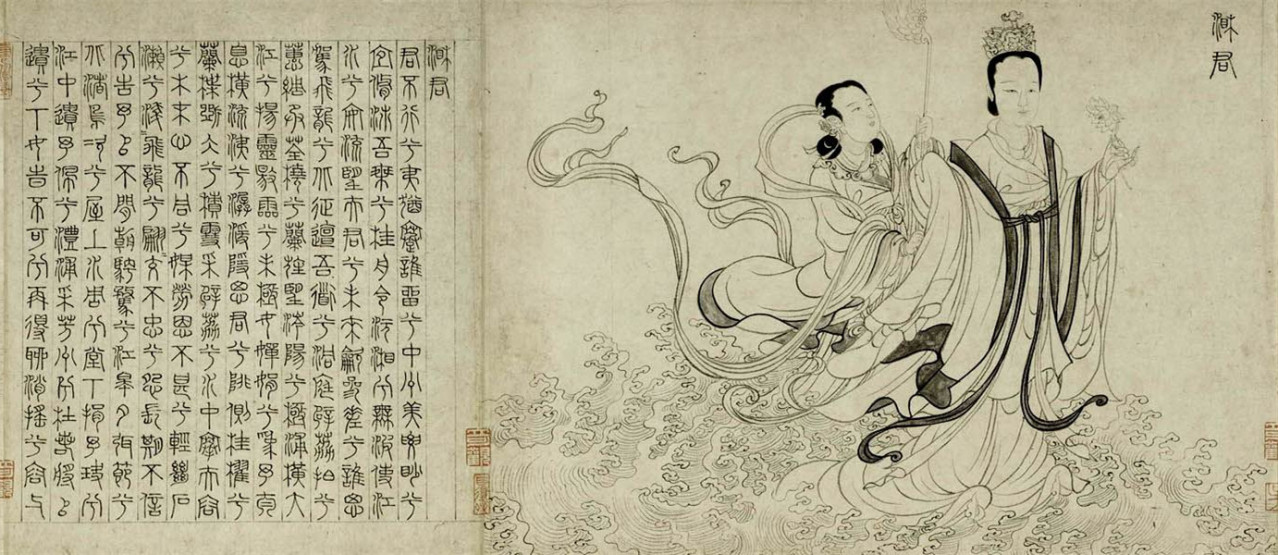 湘君
湘君
君不行兮夷猶蹇誰留兮中州美要眇兮
宜修沛吾乘兮桂舟令沅湘兮無波使江
水兮安流望夫君兮未來吹參差兮誰思
駕飛龍兮北征邅吾道兮洞庭薜荔拍兮
蕙綢承荃橈兮蘭旌望涔陽兮極浦橫大
江兮揚靈揚靈兮未極女嬋媛兮為予太
息橫流涕兮潺湲隱思君兮陫側桂櫂兮
蘭枻斲冰兮積雪采薜荔兮水中搴芙蓉
兮木末心不同兮媒勞恩不甚兮輕絕石
瀨兮淺淺飛龍兮翩翩交不忠兮怨長期不信
兮告予以不閒朝騁騖兮江皋夕弭節兮
北渚鳥次兮屋上水周兮堂下捐予玦兮
江中遺予佩兮澧浦采芳洲兮杜若將以
遺兮下女時不可兮再得聊逍遙兮容與